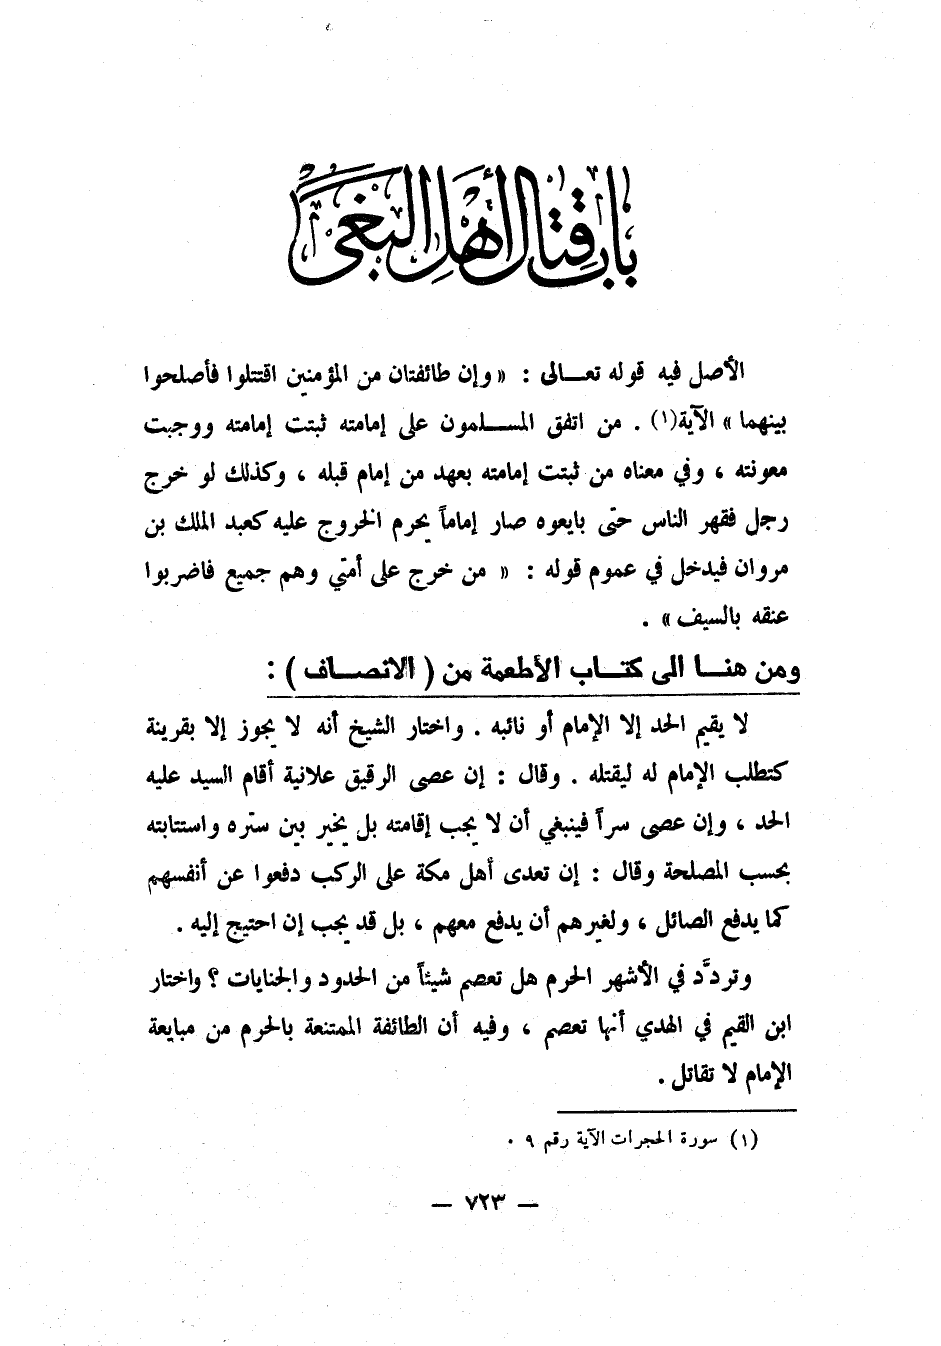 باب قتال أهل البغي
الأصل فيه قوله تعـــالى : « وإن طائفتان من المؤمنين اقتتلوا فأصلحوا
بينهما » الآية(١) . من اتفق المســلمون على إمامته ثبتت إمامته ووجبت
معونته ، وفي معناه من ثبتت إمامته بعهد من إمام قبله ، وكذلك لو خرج
رجل فقهر الناس حتى بايعوه صار إماماً يحرم الخروج عليه كعبد الملك بن
مروان فيدخل في عموم قوله : « من خرج على أمتي وهم جميع فاضربوا
عنقه بالسيف » .
ومن هنــا الى كتــاب الأطعمة من ( الانصــاف ) :
لا يقيم الحد إلا الإمام أو نائبه . واختار الشيخ أنه لا يجوز إلا بقرينة
كتطلب الإمام له ليقتله . وقال : إن عصى الرقيق علانية أقام السيد عليه
الحد ، وإن عصى سراً فينبغي أن لا يجب إقامته بل يخير بين ستره واستتابته
بحسب المصلحة وقال : إن تعدى أهل مكة على الركب دفعوا عن أنفسهم
كما يدفع الصائل ، ولغيرهم أن يدفع معهم ، بل قد يجب إن احتيج إليه .
وتردَّد في الأشهر الحرم هل تعصم شيئاً من الحدود والجنايات ؟ واختار
ابن القيم في الهدي أنها تعصم ، وفيه أن الطائفة الممتنعة بالحرم من مبايعة
الإمام لا تقاتل .
(١) سورة الحجرات الآية رقم ٩ .
— ٧٢٣ —